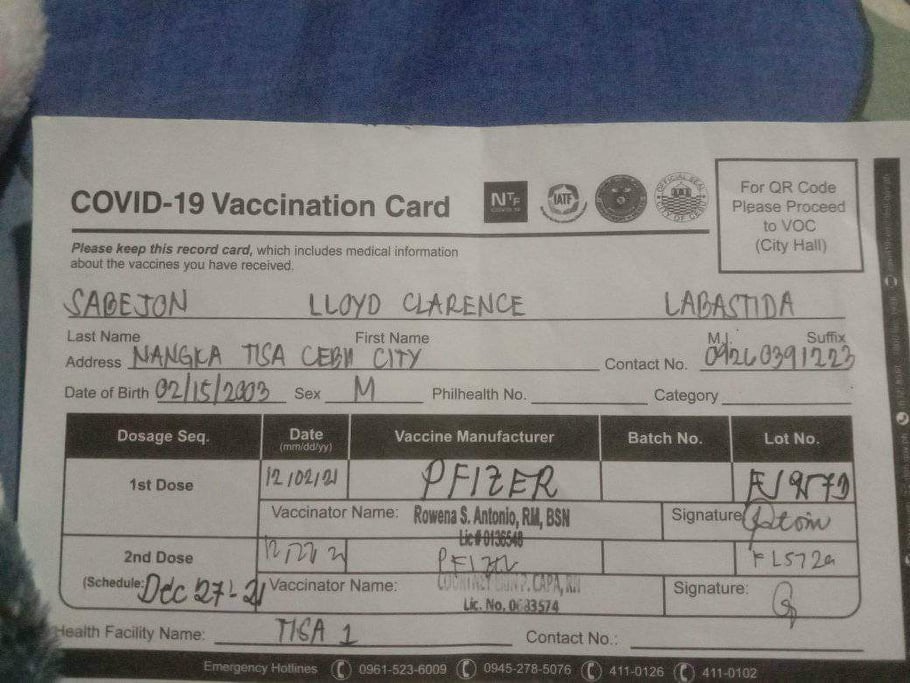 COVID-19 Vaccination Card
NTF
IATF
For QR Code
Please Proceed
to VOC
(City Hall)
Please keep this record card, which includes medical information
about the vaccines you have received.
SABEJON LLOYD CLARENCE LABASTIDA
Last Name First Name M.I. Suffix
Address NANGKA TISA CEBU CITY Contact No. 09260391223
Date of Birth 02/15/2003 Sex M Philhealth No. Category
Dosage Seq. Date Vaccine Manufacturer Batch No. Lot No.
(mm/dd/yy)
1st Dose 12/02/21 PFIZER
Vaccinator Name: Rowena S. Antonio, RM, BSN Signature
Lic# 0136548
2nd Dose
(Schedule: Dec 27-21 Vaccinator Name: CAPA, RN Signature:
Lic. No.
Health Facility Name: TISA 1 Contact No.:
Emergency Hotlines 0961-523-6009 0945-278-5076 411-0126 411-0102